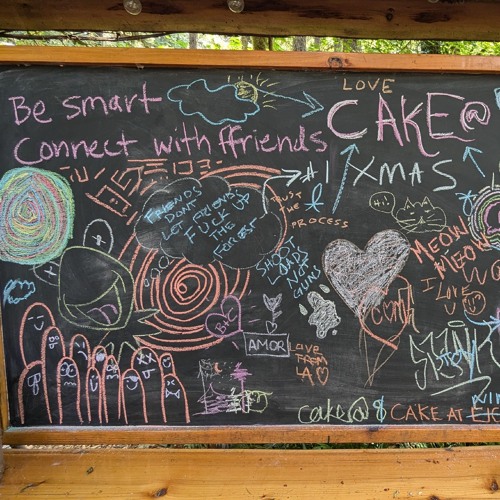 Be smart
Connect with ffriends
LOVE
CAKE@
#1 XMAS
FRIENDS
DONT
LET FRIENDS
FUCK UP
THE
FOREST
TRUST
THE
PROCESS
SHOOT
LOADS
NOT
GUNS
Hi!
MEOW
MEOW
I LOVE
U
B+C
AMOR
LOVE
FROM
LA
CAKE AT